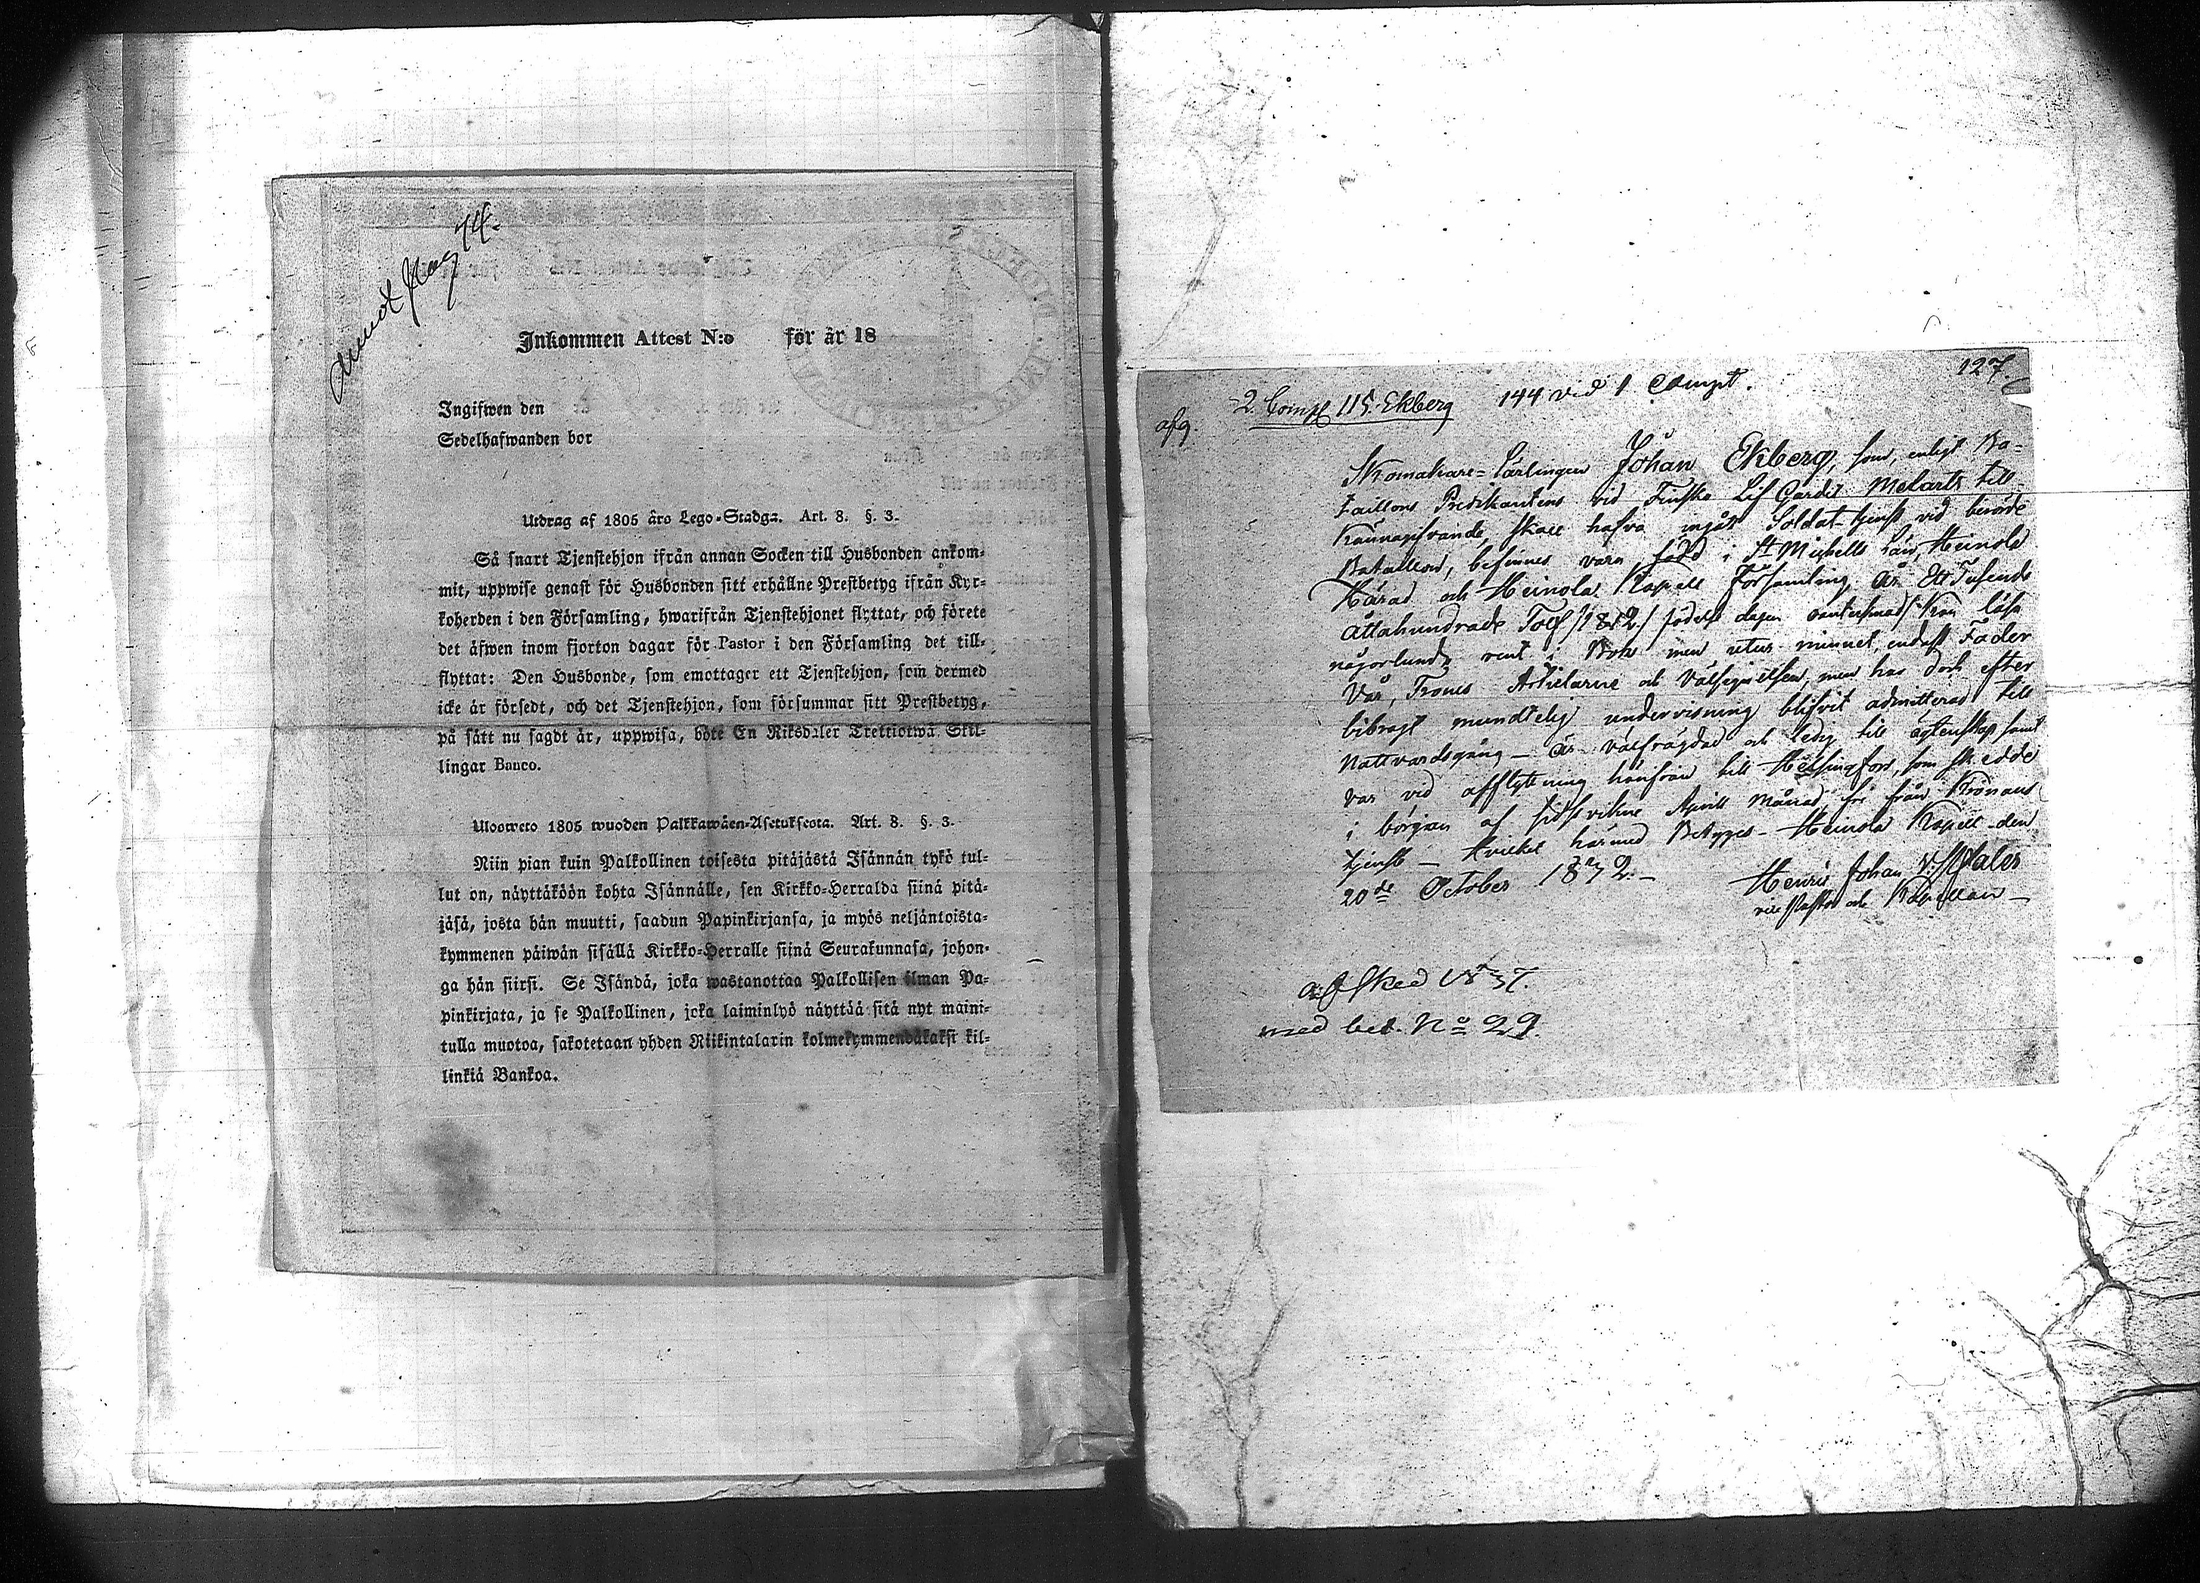 Inkommen Attest N:o för år 18
Ingifwen den
Sedelhafwanden bor
Utdrag af 1805 års Lego-Stadga. Art. 8. §. 3.
Så snart Tjenstehjon ifrån annan Socken till Husbonden ankom-
mit, uppwise genast för Husbonden sitt erhållne Prestbetyg ifrån Kyr-
koherden i den Församling, hwarifrån Tjenstehjonet flyttat, och förete
det äfwen inom fjorton dagar för Pastor i den Församling det till-
flyttat: Den Husbonde, som emottager ett Tjenstehjon, som dermed
icke är försedt, och det Tjenstehjon, som försummar sitt Prestbetyg,
på sätt nu sagdt är, uppwisa, böte En Riksdaler Trettiotwå Skil-
lingar Banco.
Ulosweto 1805 wuoden Palkkawäen-Asetuksesta. Art. 8. §. 3.
Niin pian kuin Palkollinen toisesta pitäjästä Isännän tykö tul-
lut on, näyttäköön kohta Isännälle, sen Kirkko-Herralda siinä pitä-
jäsä, josta hän muutti, saadun Papinkirjansa, ja myös neljäntoista-
kymmenen päiwän sisällä Kirkko-Herralle siinä Seurakunnasa, johon-
ga hän siirsi. Se Isändä, joka wastanottaa Palkollisen ilman Pa-
pinkirjata, ja se Palkollinen, joka laiminlyö näyttää sitä nyt maini-
tulla muotoa, sakotetaan yhden Riikintalarin kolmekymmendäkaksi kil-
linkiä Bankoa.
127.
2. Comp 115. Ekberg 144 vid 1 Compt.
afg.
Skomakare-Lärlingen Johan Ekberg, som enligt Ba-
taillons Predikantens vid Finska Lif Gardet Melarts till-
kännagifvande, skall hafva ingåt Soldat tjenst vid berörde
Bataillon, befinnes vara född i St Michells Län, Heinola
Härad och Heinola Kapell Församling År Ett Tusende
Åttahundrade Tolf /1812/ födelse dagen Kan läsa
någorlunda rent i Bok men utur minnet endast Fader
Vår, Trones Artiklarne och Välsignelsen, men har dock efter
bibragt mundtelig undervisning blifvit admitterad till
Nattvardsgång – är välfrägdad och ledig till ägtenskap samt
var vid afflyttning härifrån till Helsingfors, som skedde
i början af sidstvikne April Månad, fri från Kronans
tjenst – Hvilket härmed Betyges – Heinola Kapell den
20de October 1832.– Henric Johan
vice Pastor och Kapellan –
afsked 1837.
med bet. No 29.